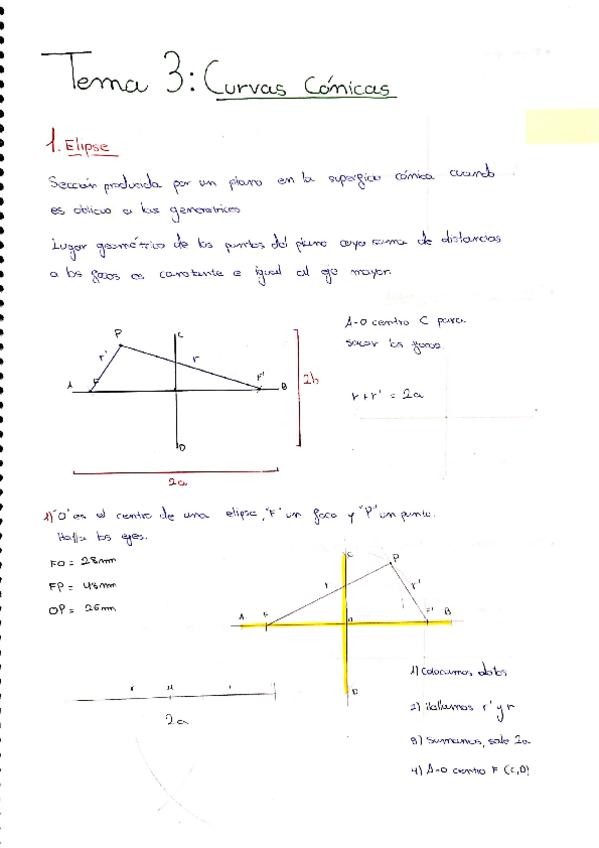 Tema 3: Curvas Cónicas
1. Elipse
Sección producida por un plano en la superficie cónica cuando
es oblicuo a las generatrices
Lugar geométrico de los puntos del plano cuya suma de distancias
a los focos es constante e igual al eje mayor.
A-O centro C para
sacar los focos.
r+r' = 2a
P
C
r'
r
A
F
F'
B
2b
D
2a
1) "O" es el centro de una elipse, "F" un foco y "P" un punto.
Halla los ejes.
FO = 28mm
FP = 48mm
OP = 26mm
C
P
r
r'
A
F
O
F'
B
D
2a
1) Colocamos datos
2) Hallamos r' y r
3) Sumamos, sale 2a
4) A-O centro F (C,D)